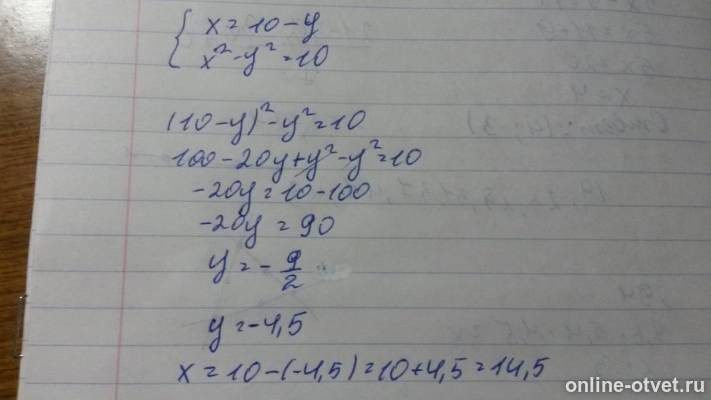 { x = 10 - y
x² - y² = 10
(10 - y)² - y² = 10
100 - 20y + y² - y² = 10
-20y = 10 - 100
-20y = 90
y = - 9/2
y = -4,5
x = 10 - (-4,5) = 10 + 4,5 = 14,5
online-otvet.ru